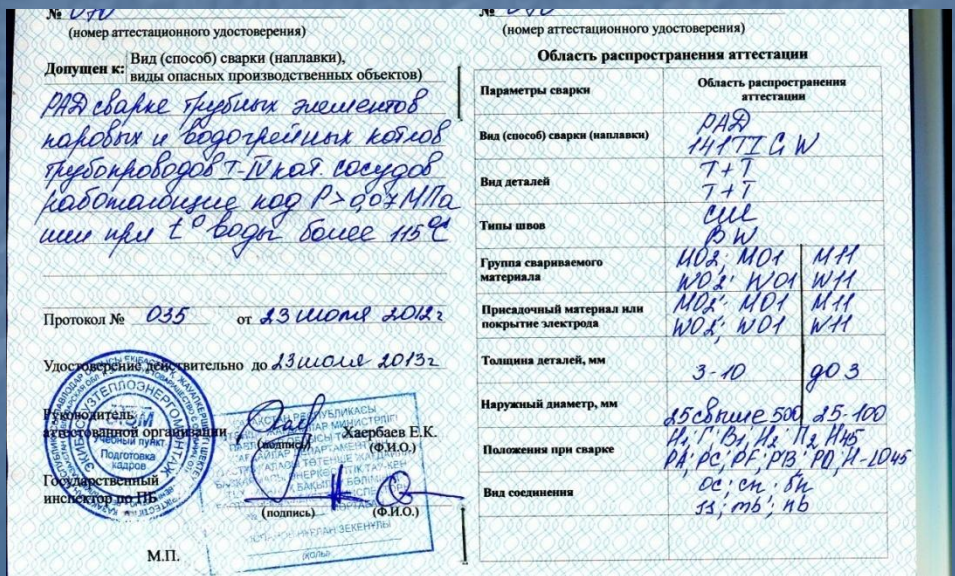 № 070
(номер аттестационного удостоверения)
Допущен к: Вид (способ) сварки (наплавки),
виды опасных производственных объектов)
РАД сварке трубных элементов
паровых и водогрейных котлов
трубопроводов I-IV кат. сосудов
работающие под Р>0,07 МПа
или при t° воды более 115°С
Протокол № 035 от 23 июля 2012г
Удостоверение действительно до 23 июля 2013г
Руководитель
аттестованной организации
(подпись)
Хаербаев Е.К.
(Ф.И.О.)
Государственный
инспектор по ПБ
(подпись)
(Ф.И.О.)
М.П.
ЭКИБАСТУЗТЕПЛОЭНЕРГОМОНТАЖ
ЭТЭМ
Учебный пункт
Подготовка
кадров
РЕСПУБЛИКАСЫ
(қолы)
№ 070
(номер аттестационного удостоверения)
Область распространения аттестации
Параметры сварки
Область распространения
аттестации
Вид (способ) сварки (наплавки)
РАД
141 TIG W
Вид деталей
Т+Т
Т+Т
Типы швов
СШ
BW
Группа свариваемого
материала
М02; М01 М11
W02; W01 W11
Присадочный материал или
покрытие электрода
М02; М01 М11
W02; W01 W11
Толщина деталей, мм
3-10 до 3
Наружный диаметр, мм
25 свыше 500 25-100
Положения при сварке
Н1, Г, В1, Н2, П2, Н45
PA; PC; PF; PB; PD; H-L045
Вид соединения
ос; сп; бп
ss; mb; nb